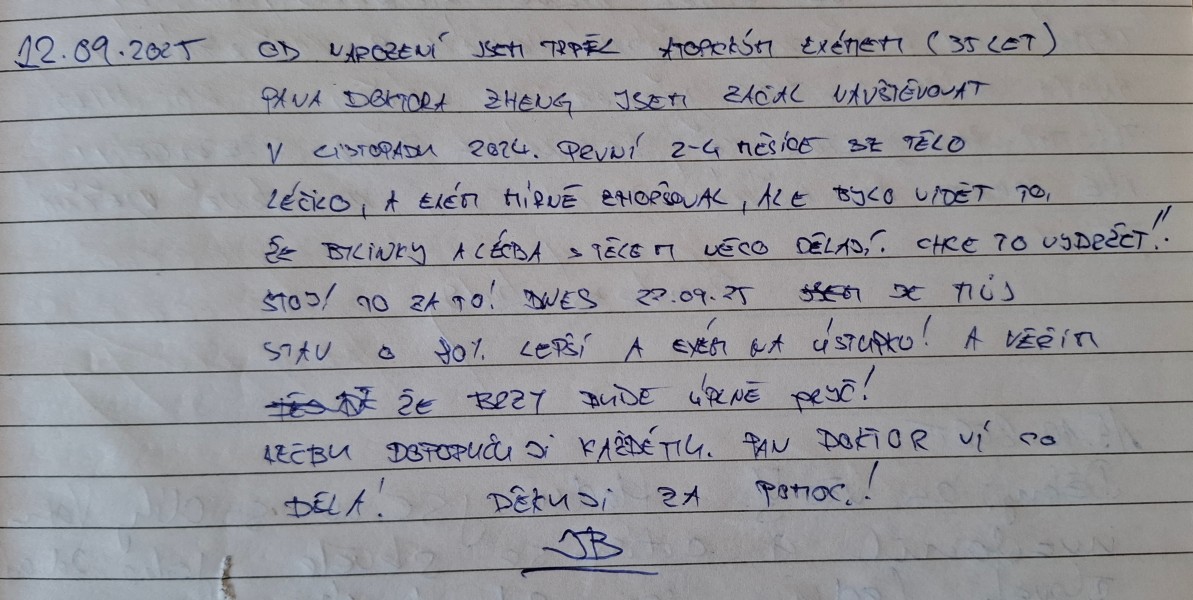 12.09.2025 OD NAROZENÍ JSEM TRPĚL ATOPICKÝM EXÉMEM (35 LET)
PANA DOKTORA ZHENG JSEM ZAČAL NAVŠTĚVOVAT
V LISTOPADU 2024. PRVNÍ 2-4 MĚSÍCE SE TĚLO
LÉČILO, A EXÉM MÍRNĚ ZHORŠOVAL, ALE BYLO VIDĚT TO,
ŽE BYLINKY A LÉČBA S TĚLEM NĚCO DĚLAJÍ. CHCE TO VYDRŽET!!
STOJÍ TO ZA TO! DNES 22.09.25 JE MŮJ
STAV O 90% LEPŠÍ A EXÉM NA ÚSTUPKU! A VĚŘÍM
ŽE BRZY BUDE ÚPLNĚ PRYČ!
LÉČBU DOPORUČUJI KAŽDÉMU. PAN DOKTOR VÍ CO
DĚLÁ! DĚKUJI ZA POMOC!
JB